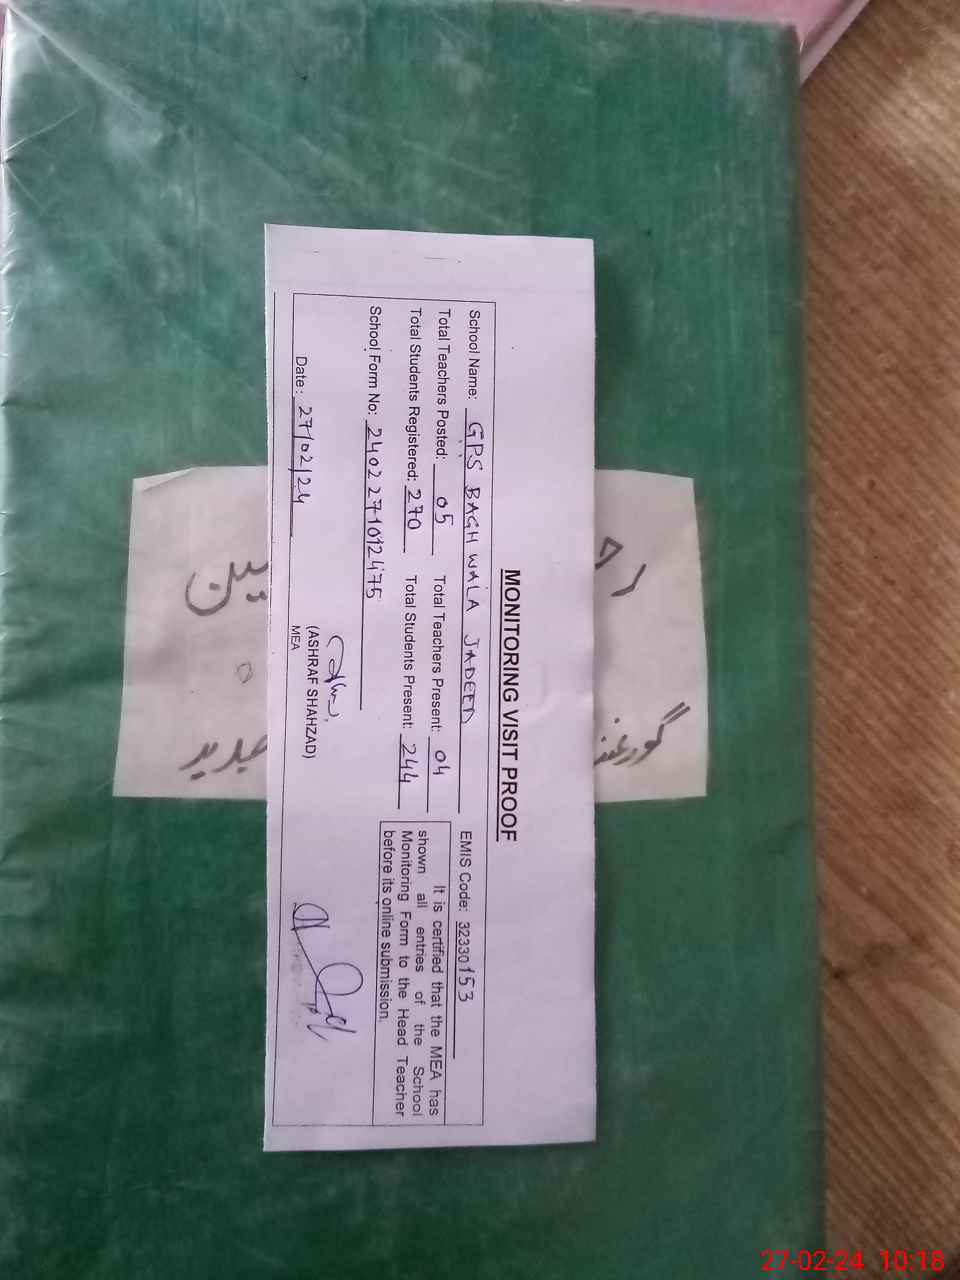 MONITORING VISIT PROOF
School Name: GPS BAGH WALA JADEED EMIS Code: 32330153
Total Teachers Posted: 05 Total Teachers Present: 04
Total Students Registered: 270 Total Students Present: 244
School Form No: 2402271012475
It is certified that the MEA has
shown all entries of the School
Monitoring Form to the Head Teacher
before its online submission.
Date: 27/02/24
(ASHRAF SHAHZAD)
MEA
جدید
27-02-24 10:18